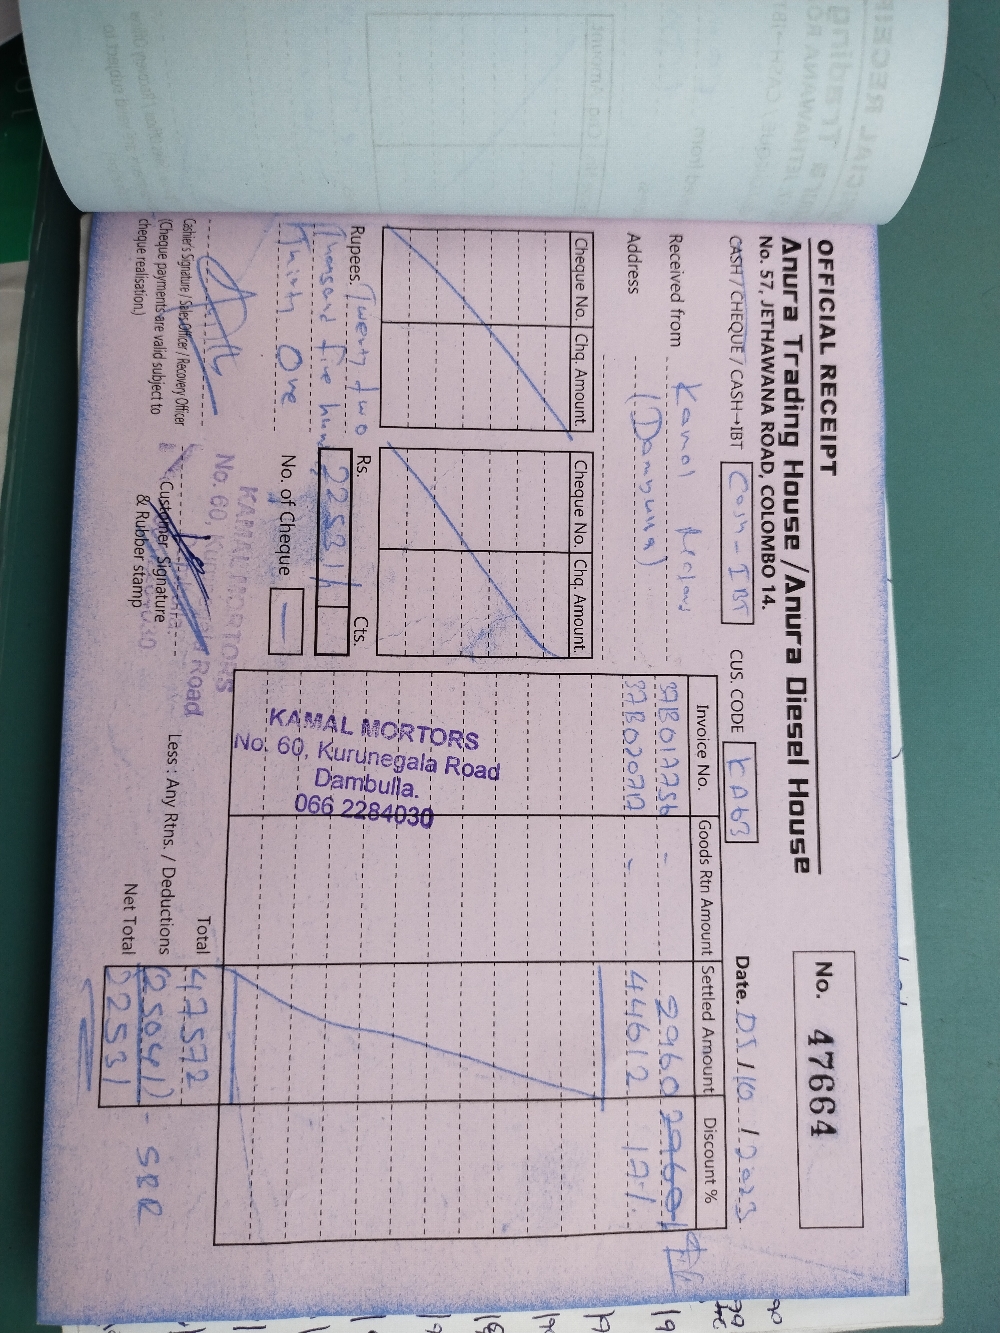 OFFICIAL RECEIPT
Anura Trading House / Anura Diesel House
No. 57, JETHAWANA ROAD, COLOMBO 14.
No. 47664
CASH / CHEQUE / CASH→IBT Cash - IBT
CUS. CODE KA63
Date. 05 / 10 / 2023
Received from Kamal
Address (Dambulla)
Cheque No. Chq. Amount. Cheque No. Chq. Amount.
Invoice No. Goods Rtn Amount Settled Amount Discount %
37B017756 - 2960 2960/
37B020712 - 44612 17%
KAMAL MORTORS
No. 60, Kurunegala Road
Dambulla.
066 2284030
Rupees. Twenty two
Thousand five hun
Thirty One
Rs. 22531/ Cts.
No. of Cheque —
Total 47572
Less : Any Rtns. / Deductions (25041) - SRR
Net Total 22531
Cashier's Signature / Sales Officer / Recovery Officer
(Cheque payments are valid subject to
cheque realisation.)
KAMAL MORTORS
No. 60, Road
Customer Signature
& Rubber stamp